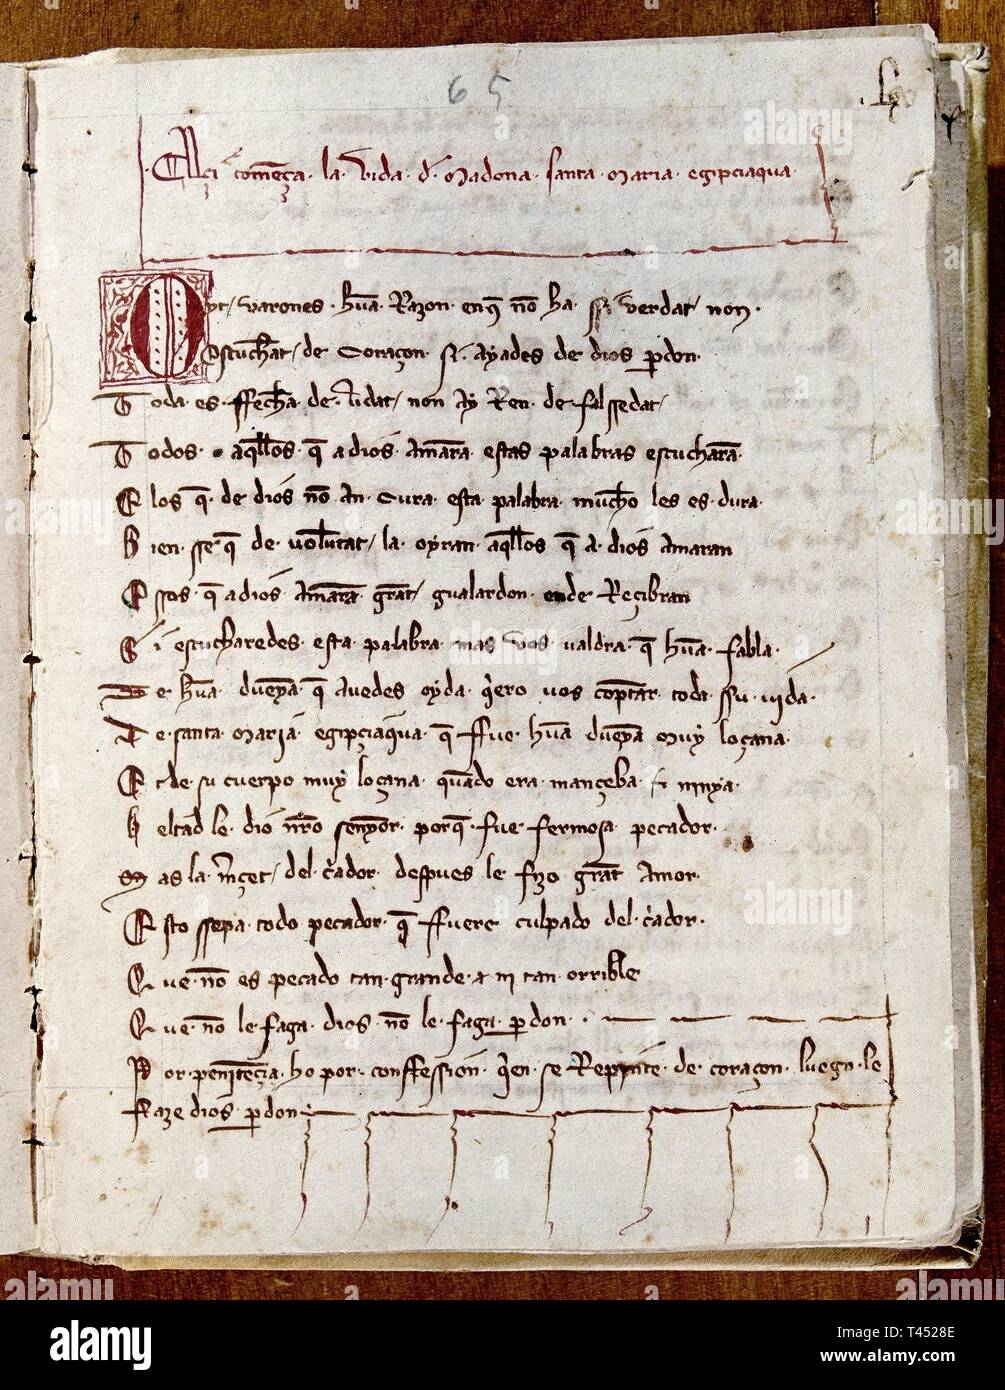 65
Açi comẽça la vida d̃ Madona santa Maria egipciaqua
Oyt varones hũa Razon en q̃ nõ ha ssi verdat non
Escuchat de coraçon si ayades de dios p̱don
Toda es ffecha de ũdat non ay Ren de falssedat
Todos aq̃llos q̃ a dios amarã estas palabras escucharã
E los q̃ de dios nõ an cura esta palabra mucho les es dura
Bien sse q̃ de voluntat la oyran aq̃llos q̃ a dios amaran
Essos q̃ a dios amarã grãt gualardon ende Reçibran
Si escucharedes esta palabra mas vos valdra q̃ hũa fabla
De hũa dueyña q̃ auedes oyda q̃ero vos cõptar toda ssu uida
De santa Maria egipçiaqua q̃ ffue hũa dueyña muy loçana
Et de su cuerpo muy loçana quãdo era mançeba ⁊ ninya
Beltad le dio nr̃o senyor porq̃ fue fermosa pecador
Mas la m̃çet del c̃ador despues le fizo grãt amor
Esto ssepa todo pecador q̃ ffuere culpado del c̃ador
Que nõ es pecado tan grande ni tan orrible
Que nõ le faga dios nõ le faga p̱don
Por penitẽçia ho por conffession q̃en se Repinte de coraçon luego le
Faze dios p̱don
alamy
alamy
Image ID: T4528E
www.alamy.com